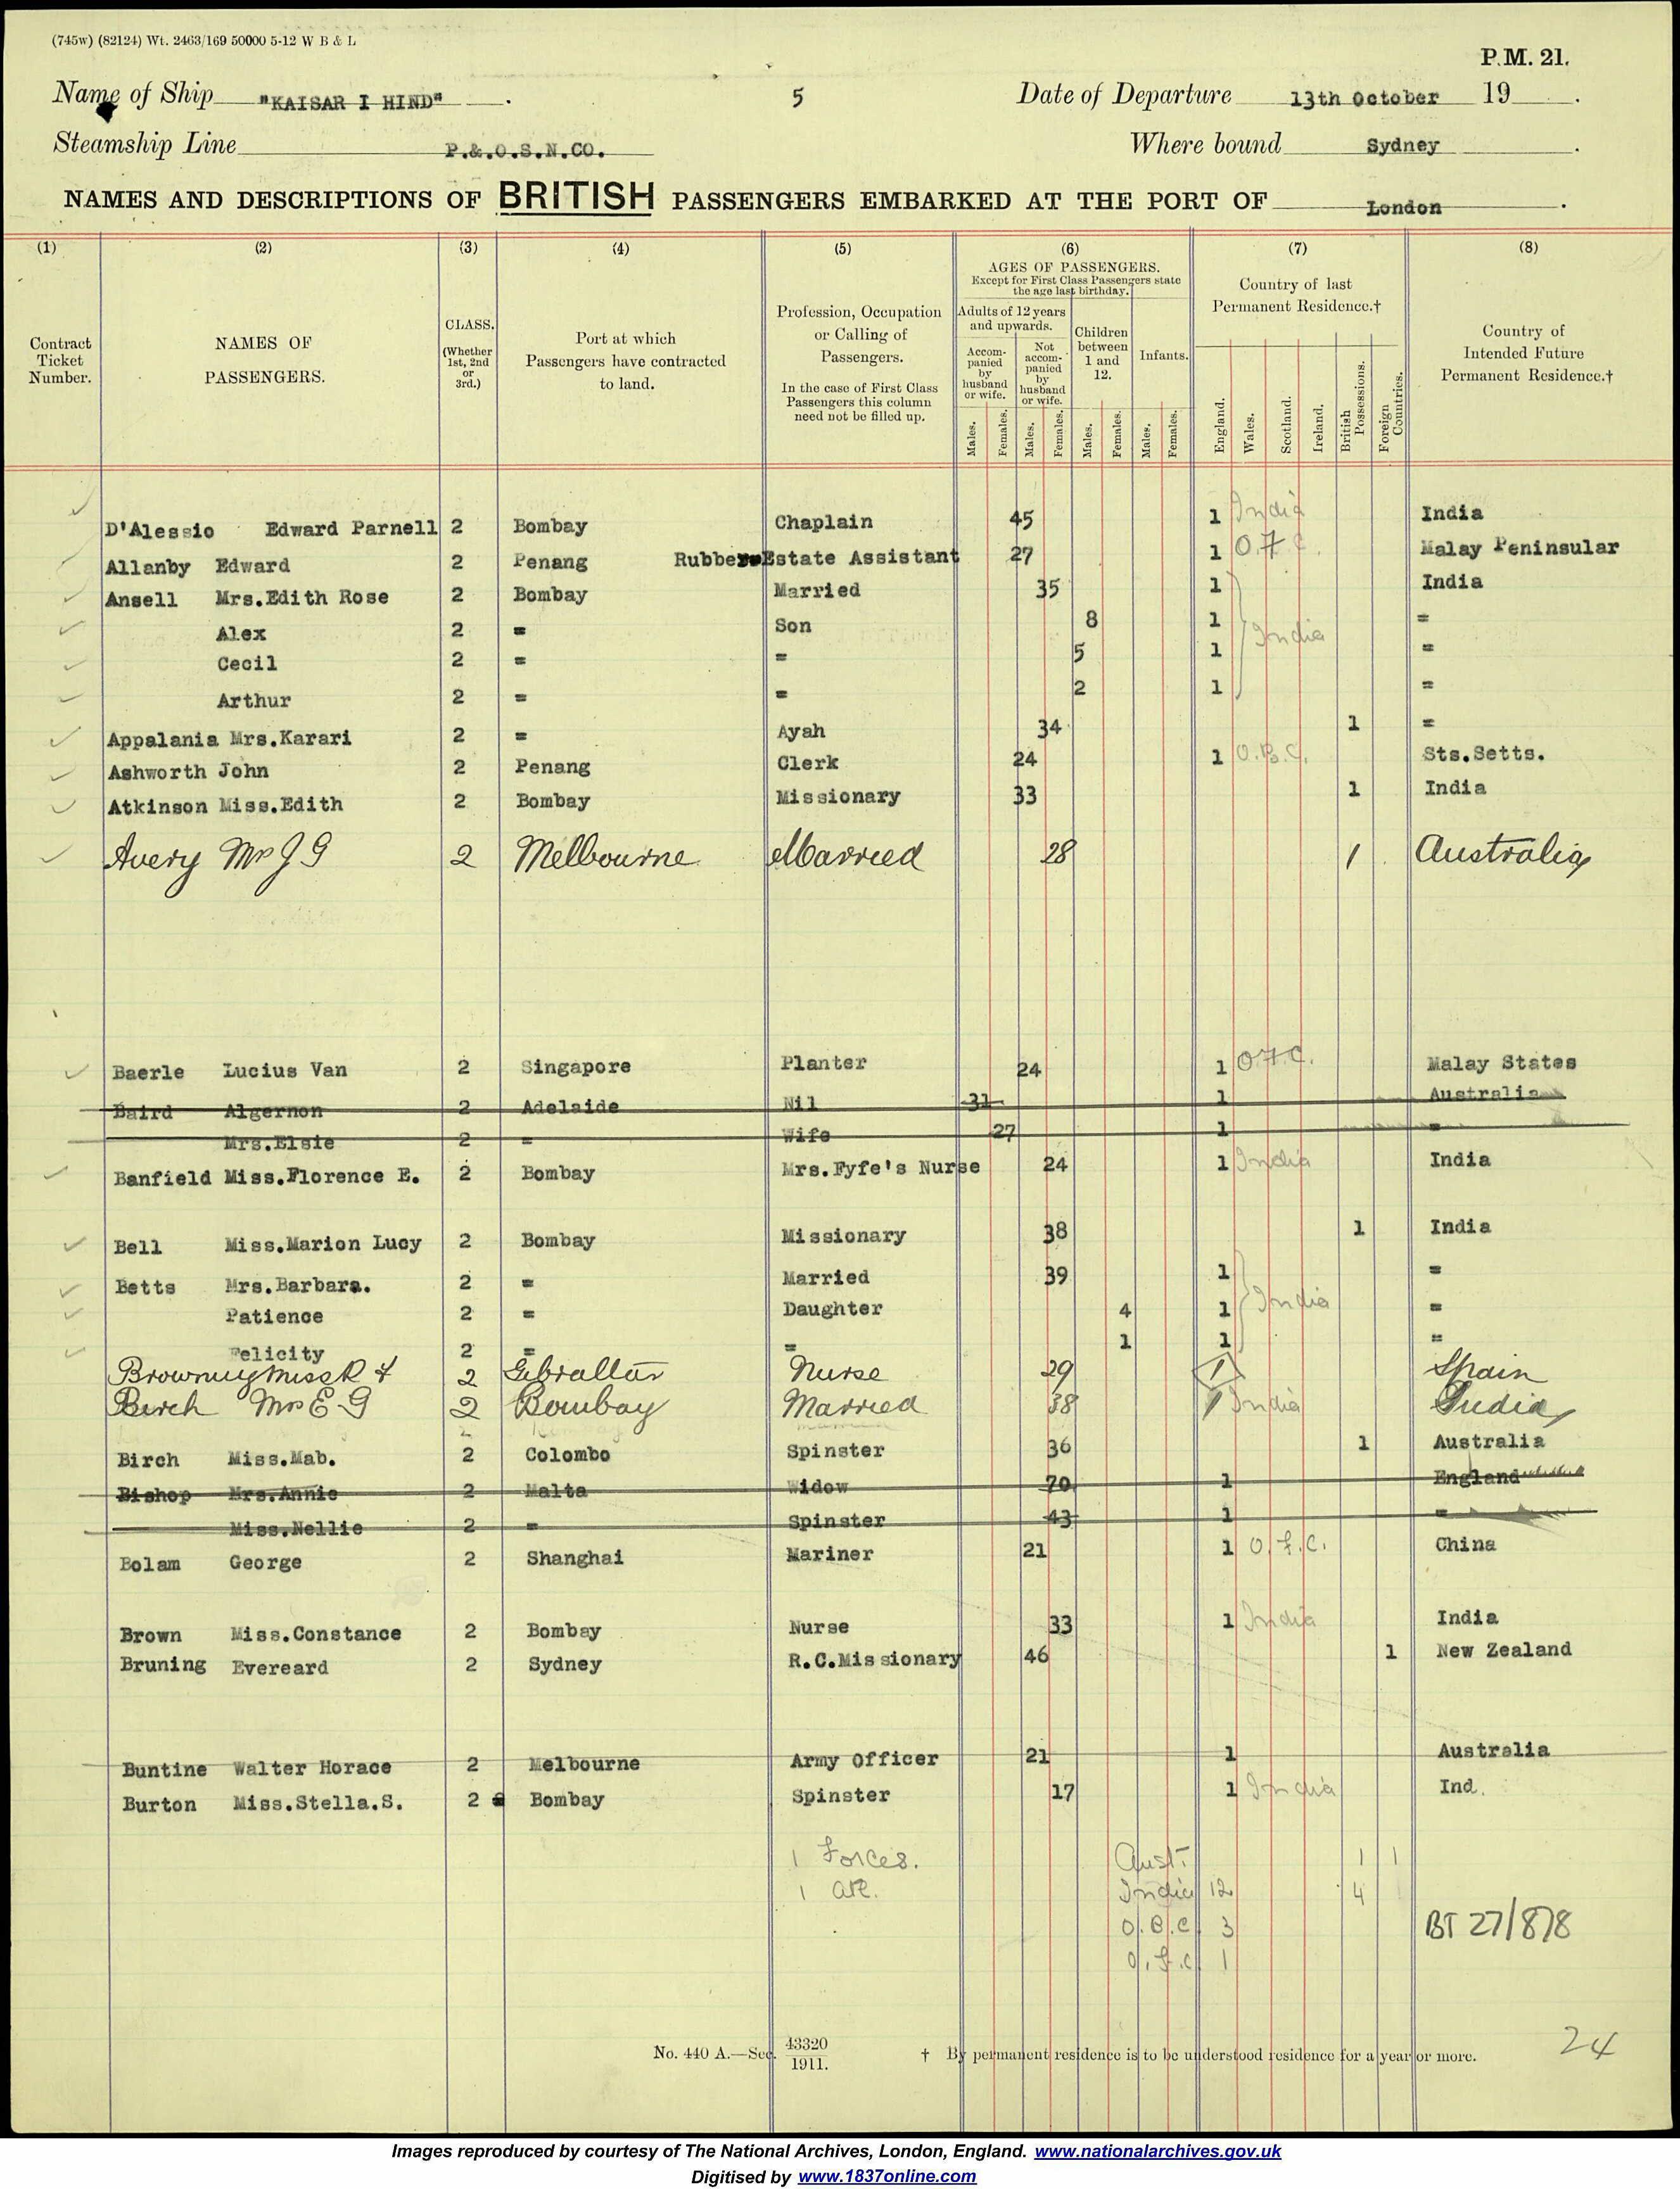 (745w) (82124) Wt. 2463/169 50000 5-12 W B & L
P.M. 21.
Name of Ship "KAISAR I HIND" 5 Date of Departure 13th October 19
Steamship Line P.&.O.S.N.CO. Where bound Sydney
NAMES AND DESCRIPTIONS OF BRITISH PASSENGERS EMBARKED AT THE PORT OF London
(1) (2) (3) (4) (5) (6) (7) (8)
Contract Ticket Number.
NAMES OF PASSENGERS.
CLASS. (Whether 1st, 2nd or 3rd.)
Port at which Passengers have contracted to land.
Profession, Occupation or Calling of Passengers.
In the case of First Class Passengers this column need not be filled up.
AGES OF PASSENGERS.
Except for First Class Passengers state the age last birthday.
Adults of 12 years and upwards.
Accompanied by husband or wife.
Not accompanied by husband or wife.
Children between 1 and 12.
Infants.
Males. Females. Males. Females. Males. Females. Males. Females.
Country of last Permanent Residence.†
England. Wales. Scotland. Ireland. British Possessions. Foreign Countries.
Country of Intended Future Permanent Residence.†
D'Alessio Edward Parnell 2 Bombay Chaplain 45 1 India India
Allanby Edward 2 Penang Rubber Estate Assistant 27 1 O.F.C. Malay Peninsular
Ansell Mrs.Edith Rose 2 Bombay Married 35 1 India
Alex 2 = Son 8 1 India =
Cecil 2 = = 5 1 =
Arthur 2 = = 2 1 =
Appalania Mrs.Karari 2 = Ayah 34 1 =
Ashworth John 2 Penang Clerk 24 1 O.B.C. Sts.Setts.
Atkinson Miss.Edith 2 Bombay Missionary 33 1 India
Avery Mrs J G 2 Melbourne Married 28 1 Australia
Baerle Lucius Van 2 Singapore Planter 24 1 O.F.C. Malay States
Baird Algernon 2 Adelaide Nil 31 1 Australia
Mrs.Elsie 2 = Wife 27 1 =
Banfield Miss.Florence E. 2 Bombay Mrs.Fyfe's Nurse 24 1 India India
Bell Miss.Marion Lucy 2 Bombay Missionary 38 1 India
Betts Mrs.Barbara. 2 = Married 39 1 =
Patience 2 = Daughter 4 1 India =
Felicity 2 = = 1 1 =
Miss R 2 Gibraltar Nurse 29 1 Spain
Birch Mrs E G 2 Bombay Married 38 1 India India
Birch Miss.Mab. 2 Colombo Spinster 36 1 Australia
Bishop Mrs.Annie 2 Malta Widow 70 1 England
Miss.Nellie 2 = Spinster 43 1 =
Bolam George 2 Shanghai Mariner 21 1 O.F.C. China
Brown Miss.Constance 2 Bombay Nurse 33 1 India India
Bruning Evereard 2 Sydney R.C.Missionary 46 1 New Zealand
Buntine Walter Horace 2 Melbourne Army Officer 21 1 Australia
Burton Miss.Stella.S. 2 Bombay Spinster 17 1 India Ind.
1 Forces. Aust. 1 1
1 India 12 4
O.B.C. 3
O.F.C. 1
BT 27/878
24
No. 440 A.—Sec. 43320/1911.
† By permanent residence is to be understood residence for a year or more.
Images reproduced by courtesy of The National Archives, London, England. www.nationalarchives.gov.uk
Digitised by www.1837online.com